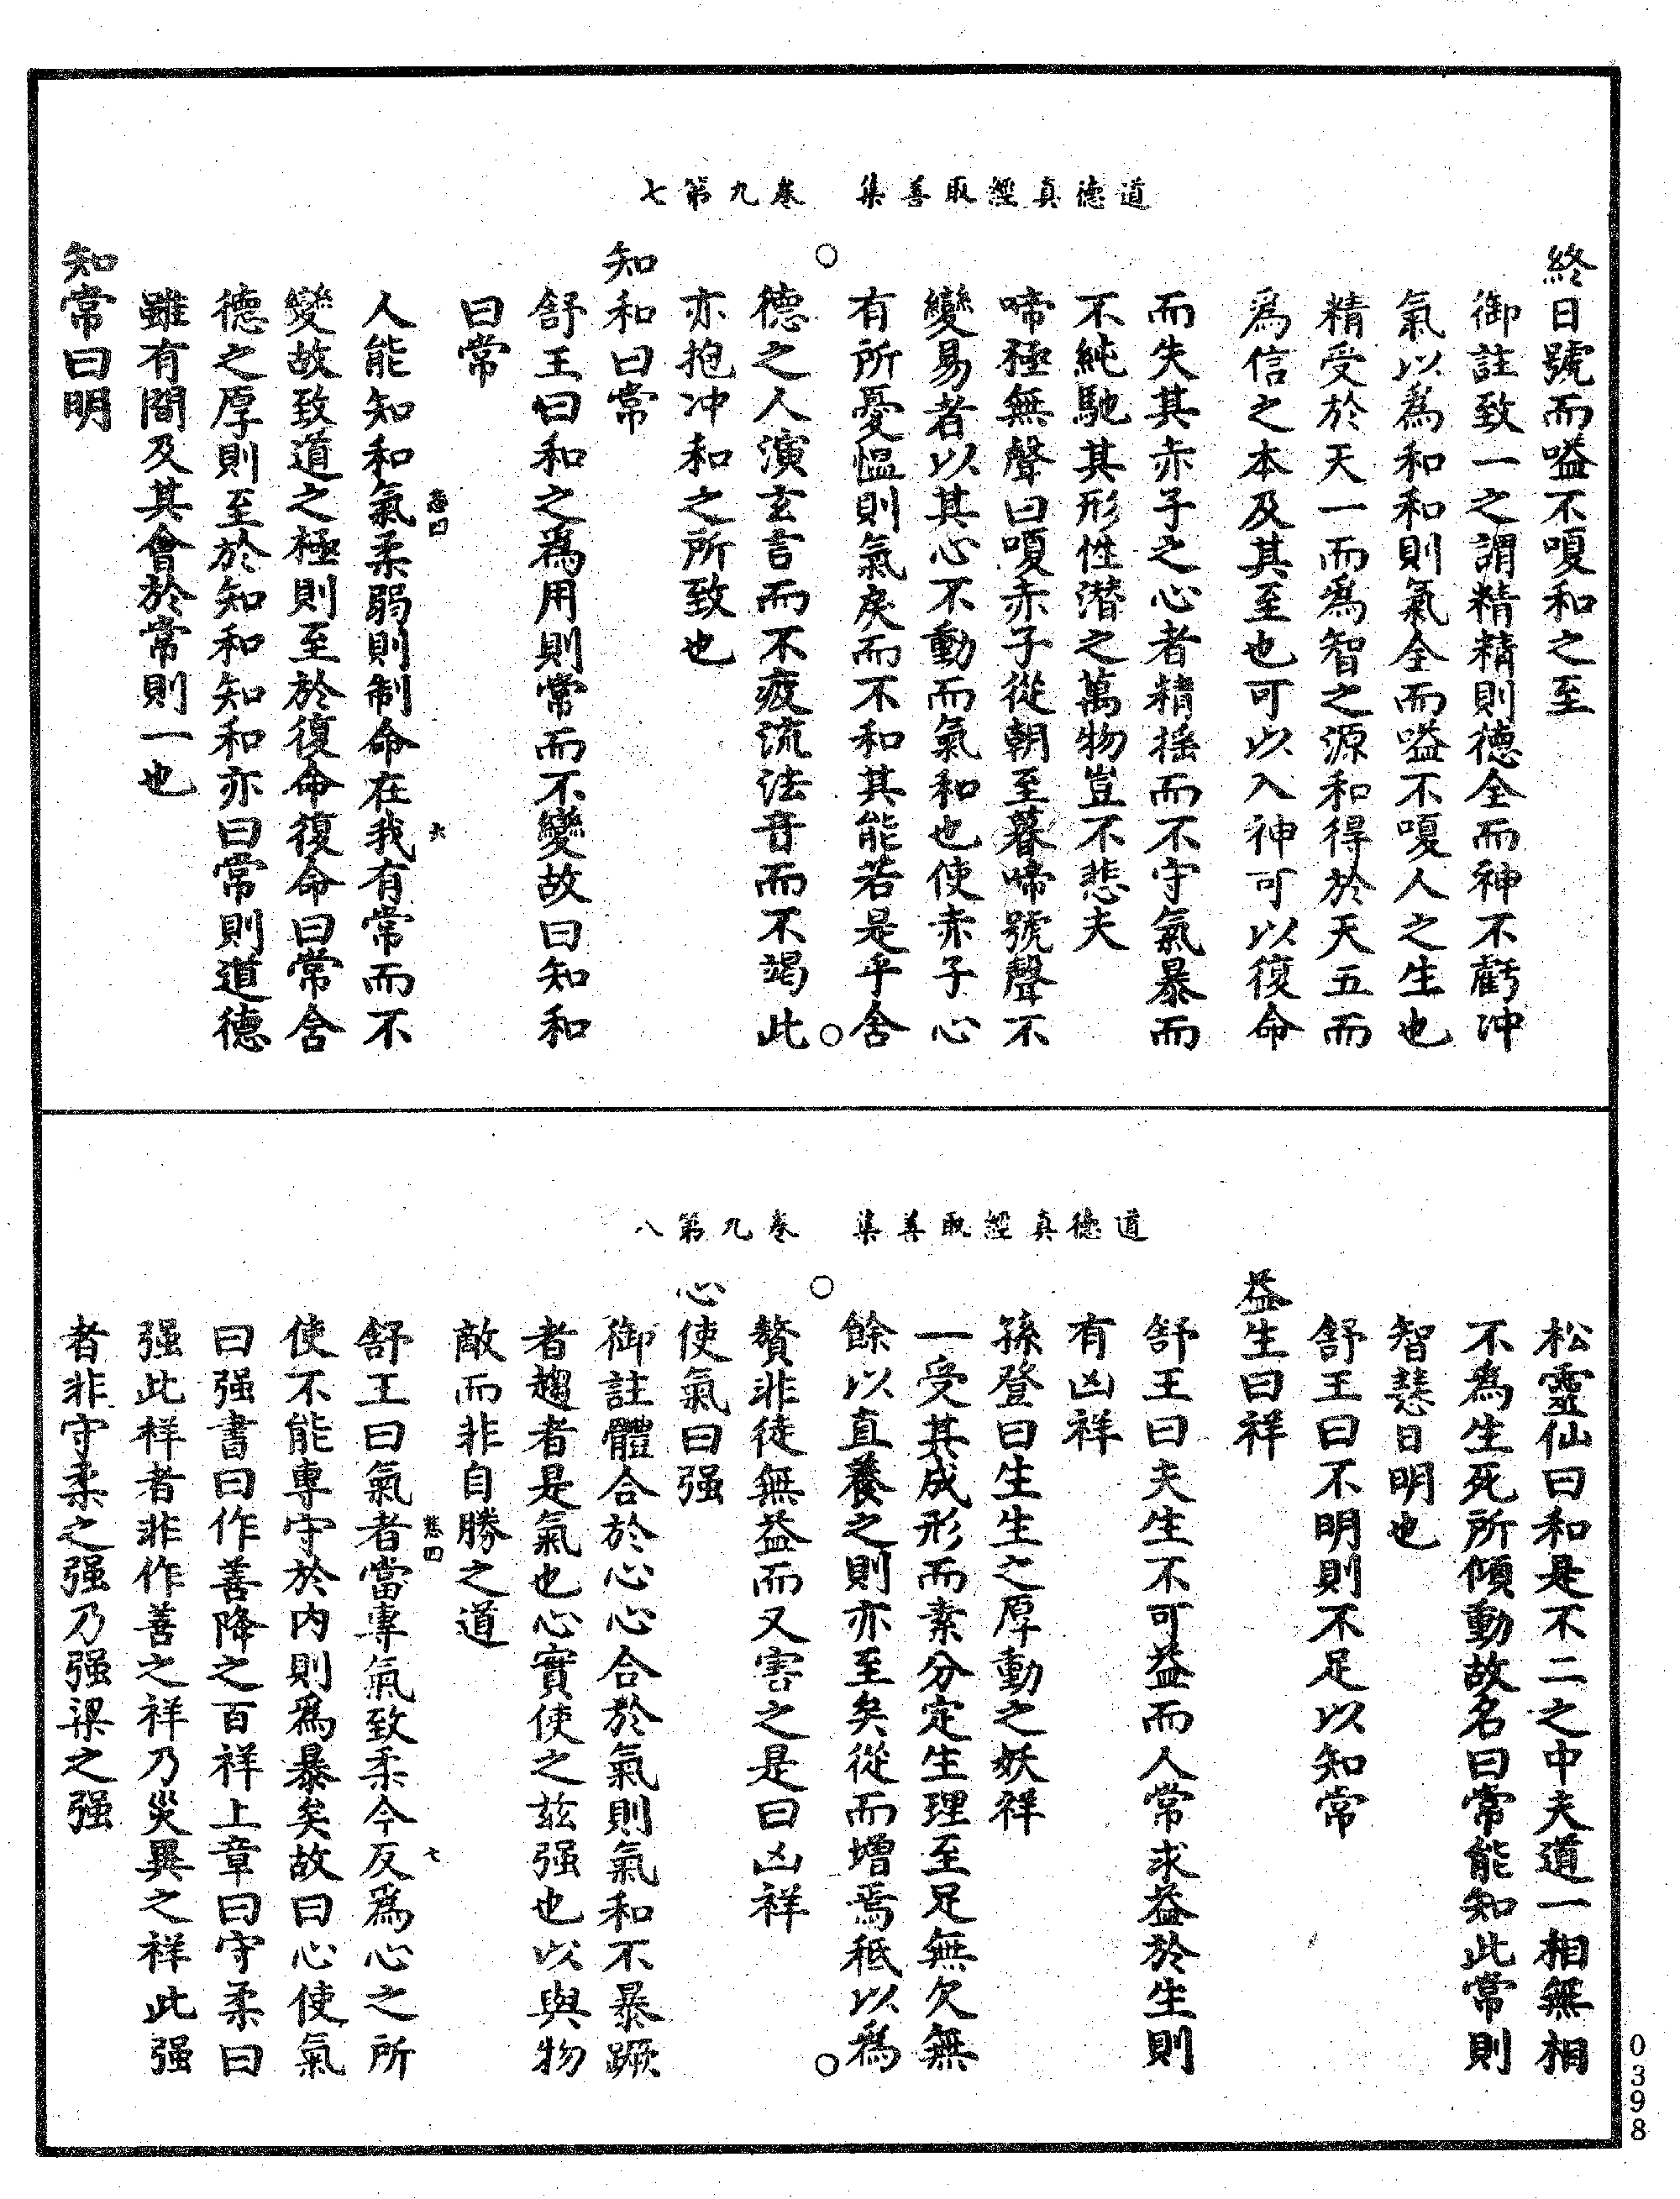 道德真經取善集　卷九第七
終日號而嗌不嗄和之至
御註致一之謂精精則德全而神不虧沖
氣以為和和則氣全而嗌不嗄人之生也
精受於天一而為智之源和得於天五而
為信之本及其至也可以入神可以復命
而失其赤子之心者精搖而不守氣暴而
不純馳其形性潛之萬物豈不悲夫
啼極無聲曰嗄赤子從朝至暮啼號聲不
變易者以其心不動而氣和也使赤子心
有所憂慍則氣戾而不和其能若是乎含
德之人演玄言而不疲流法音而不竭此
亦抱冲和之所致也
知和曰常
舒王曰和之為用則常而不變故曰知和
曰常
人能知和氣柔弱則制命在我有常而不
變故致道之極則至於復命復命曰常含
德之厚則至於知和知和亦曰常則道德
雖有間及其會於常則一也
知常曰明
道德真經取善集　卷九第八
松靈仙曰和是不二之中夫道一相無相
不為生死所傾動故名曰常能知此常則
智慧日明也
舒王曰不明則不足以知常
益生曰祥
舒王曰夫生不可益而人常求益於生則
有凶祥
孫登曰生生之厚動之妖祥
一受其成形而素分定生理至足無欠無
餘以直養之則亦至矣從而增焉秖以為
贅非徒無益而又害之是曰凶祥
心使氣曰强
御註體合於心心合於氣則氣和不暴蹶
者趨者是氣也心實使之茲强也以與物
敵而非自勝之道
舒王曰氣者當專氣致柔今反為心之所
使不能專守於內則為暴矣故曰心使氣
曰强書曰作善降之百祥上章曰守柔曰
强此祥者非作善之祥乃災異之祥此强
者非守柔之强乃强梁之强
0398